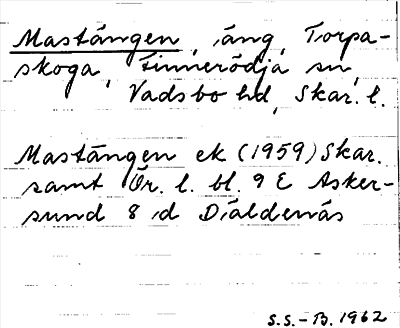 Mastängen, äng, Torpa-
skoga, Finnerödja sn,
Vadsbo hd, Skar. l.
Mastängen ek (1959) Skar.
samt Ör. l. bl. 9 E Asker-
sund 8 d Dialdenäs
S.S.-B. 1962